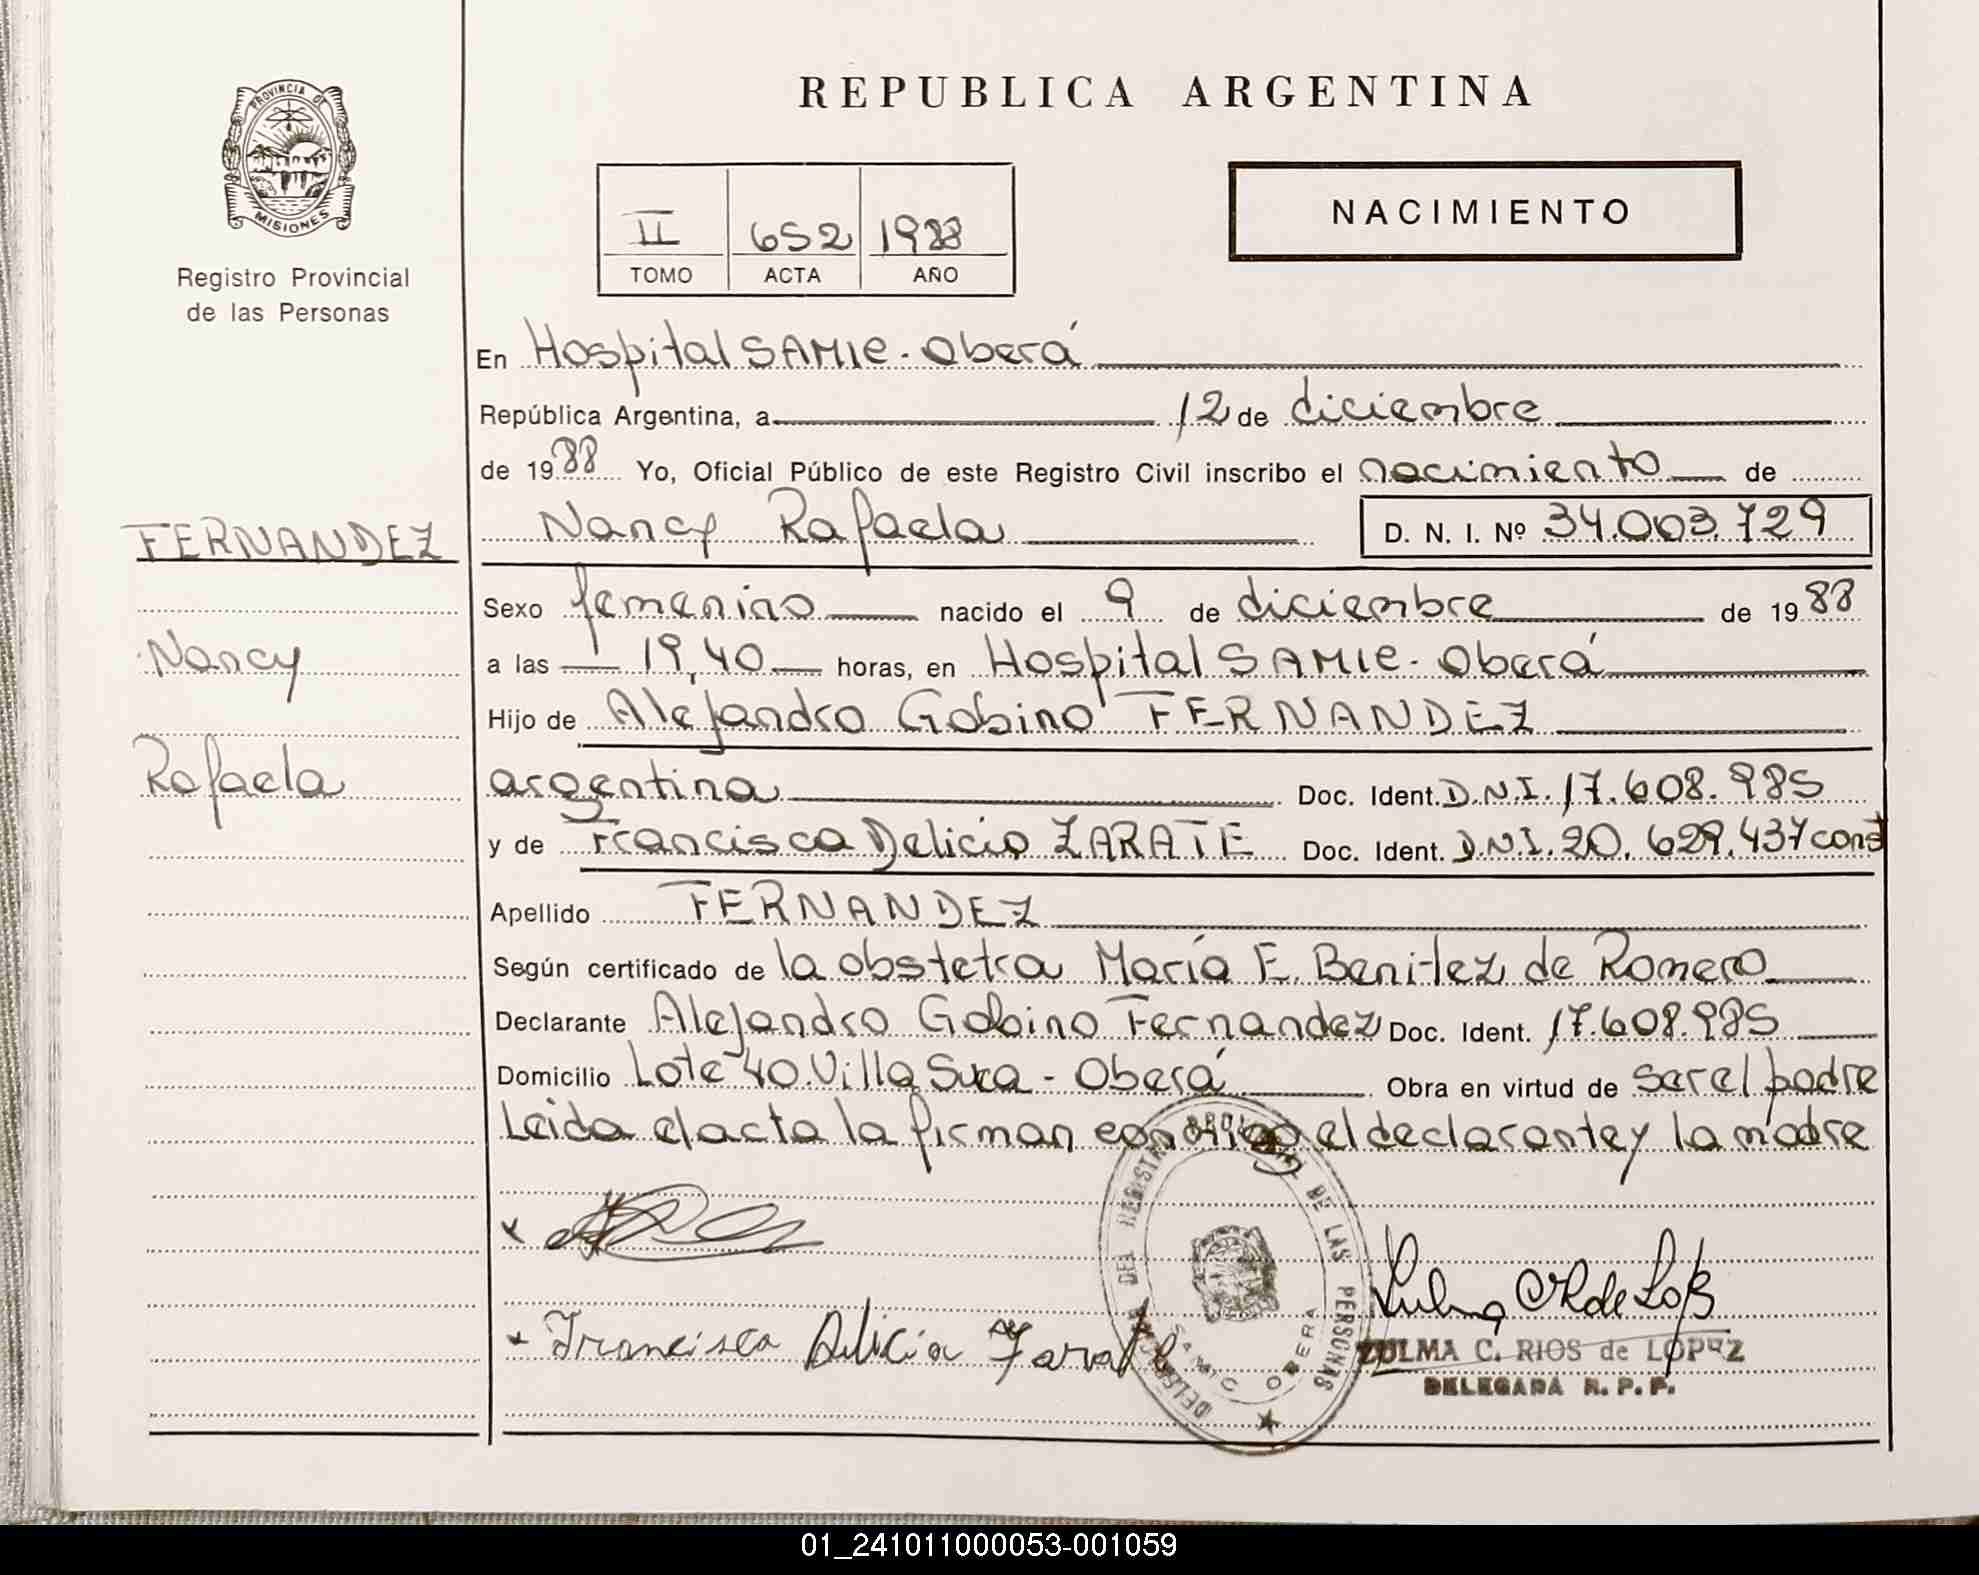 PROVINCIA DE
MISIONES
Registro Provincial
de las Personas
REPUBLICA ARGENTINA
II 652 1988
TOMO ACTA AÑO
NACIMIENTO
En Hospital SAMIC - Oberá
República Argentina, a 12 de diciembre
de 1988 Yo, Oficial Público de este Registro Civil inscribo el nacimiento de
FERNANDEZ
Nancy
Rafaela
Nancy Rafaela D. N. I. Nº 34.003.729
Sexo femenino nacido el 9 de diciembre de 1988
a las 19,40 horas, en Hospital SAMIC - Oberá
Hijo de Alejandro Gabino FERNANDEZ
argentina Doc. Ident. D.N.I. 17.608.985
y de Francisca Delicia ZARATE Doc. Ident. D.N.I. 20.629.437 const
Apellido FERNANDEZ
Según certificado de la obstetra María E. Benitez de Romero
Declarante Alejandro Gabino Fernandez Doc. Ident. 17.608.985
Domicilio Lote 40 Villa Svea - Oberá Obra en virtud de ser el padre
Leida el acta la firman conmigo el declarante y la madre
x
x Francisca Delicia Zarate
DEL REGISTRO DE LAS PERSONAS
SAMIC OBERA
ZULMA C. RIOS de LOPEZ
DELEGADA R. P. P.
01_241011000053-001059